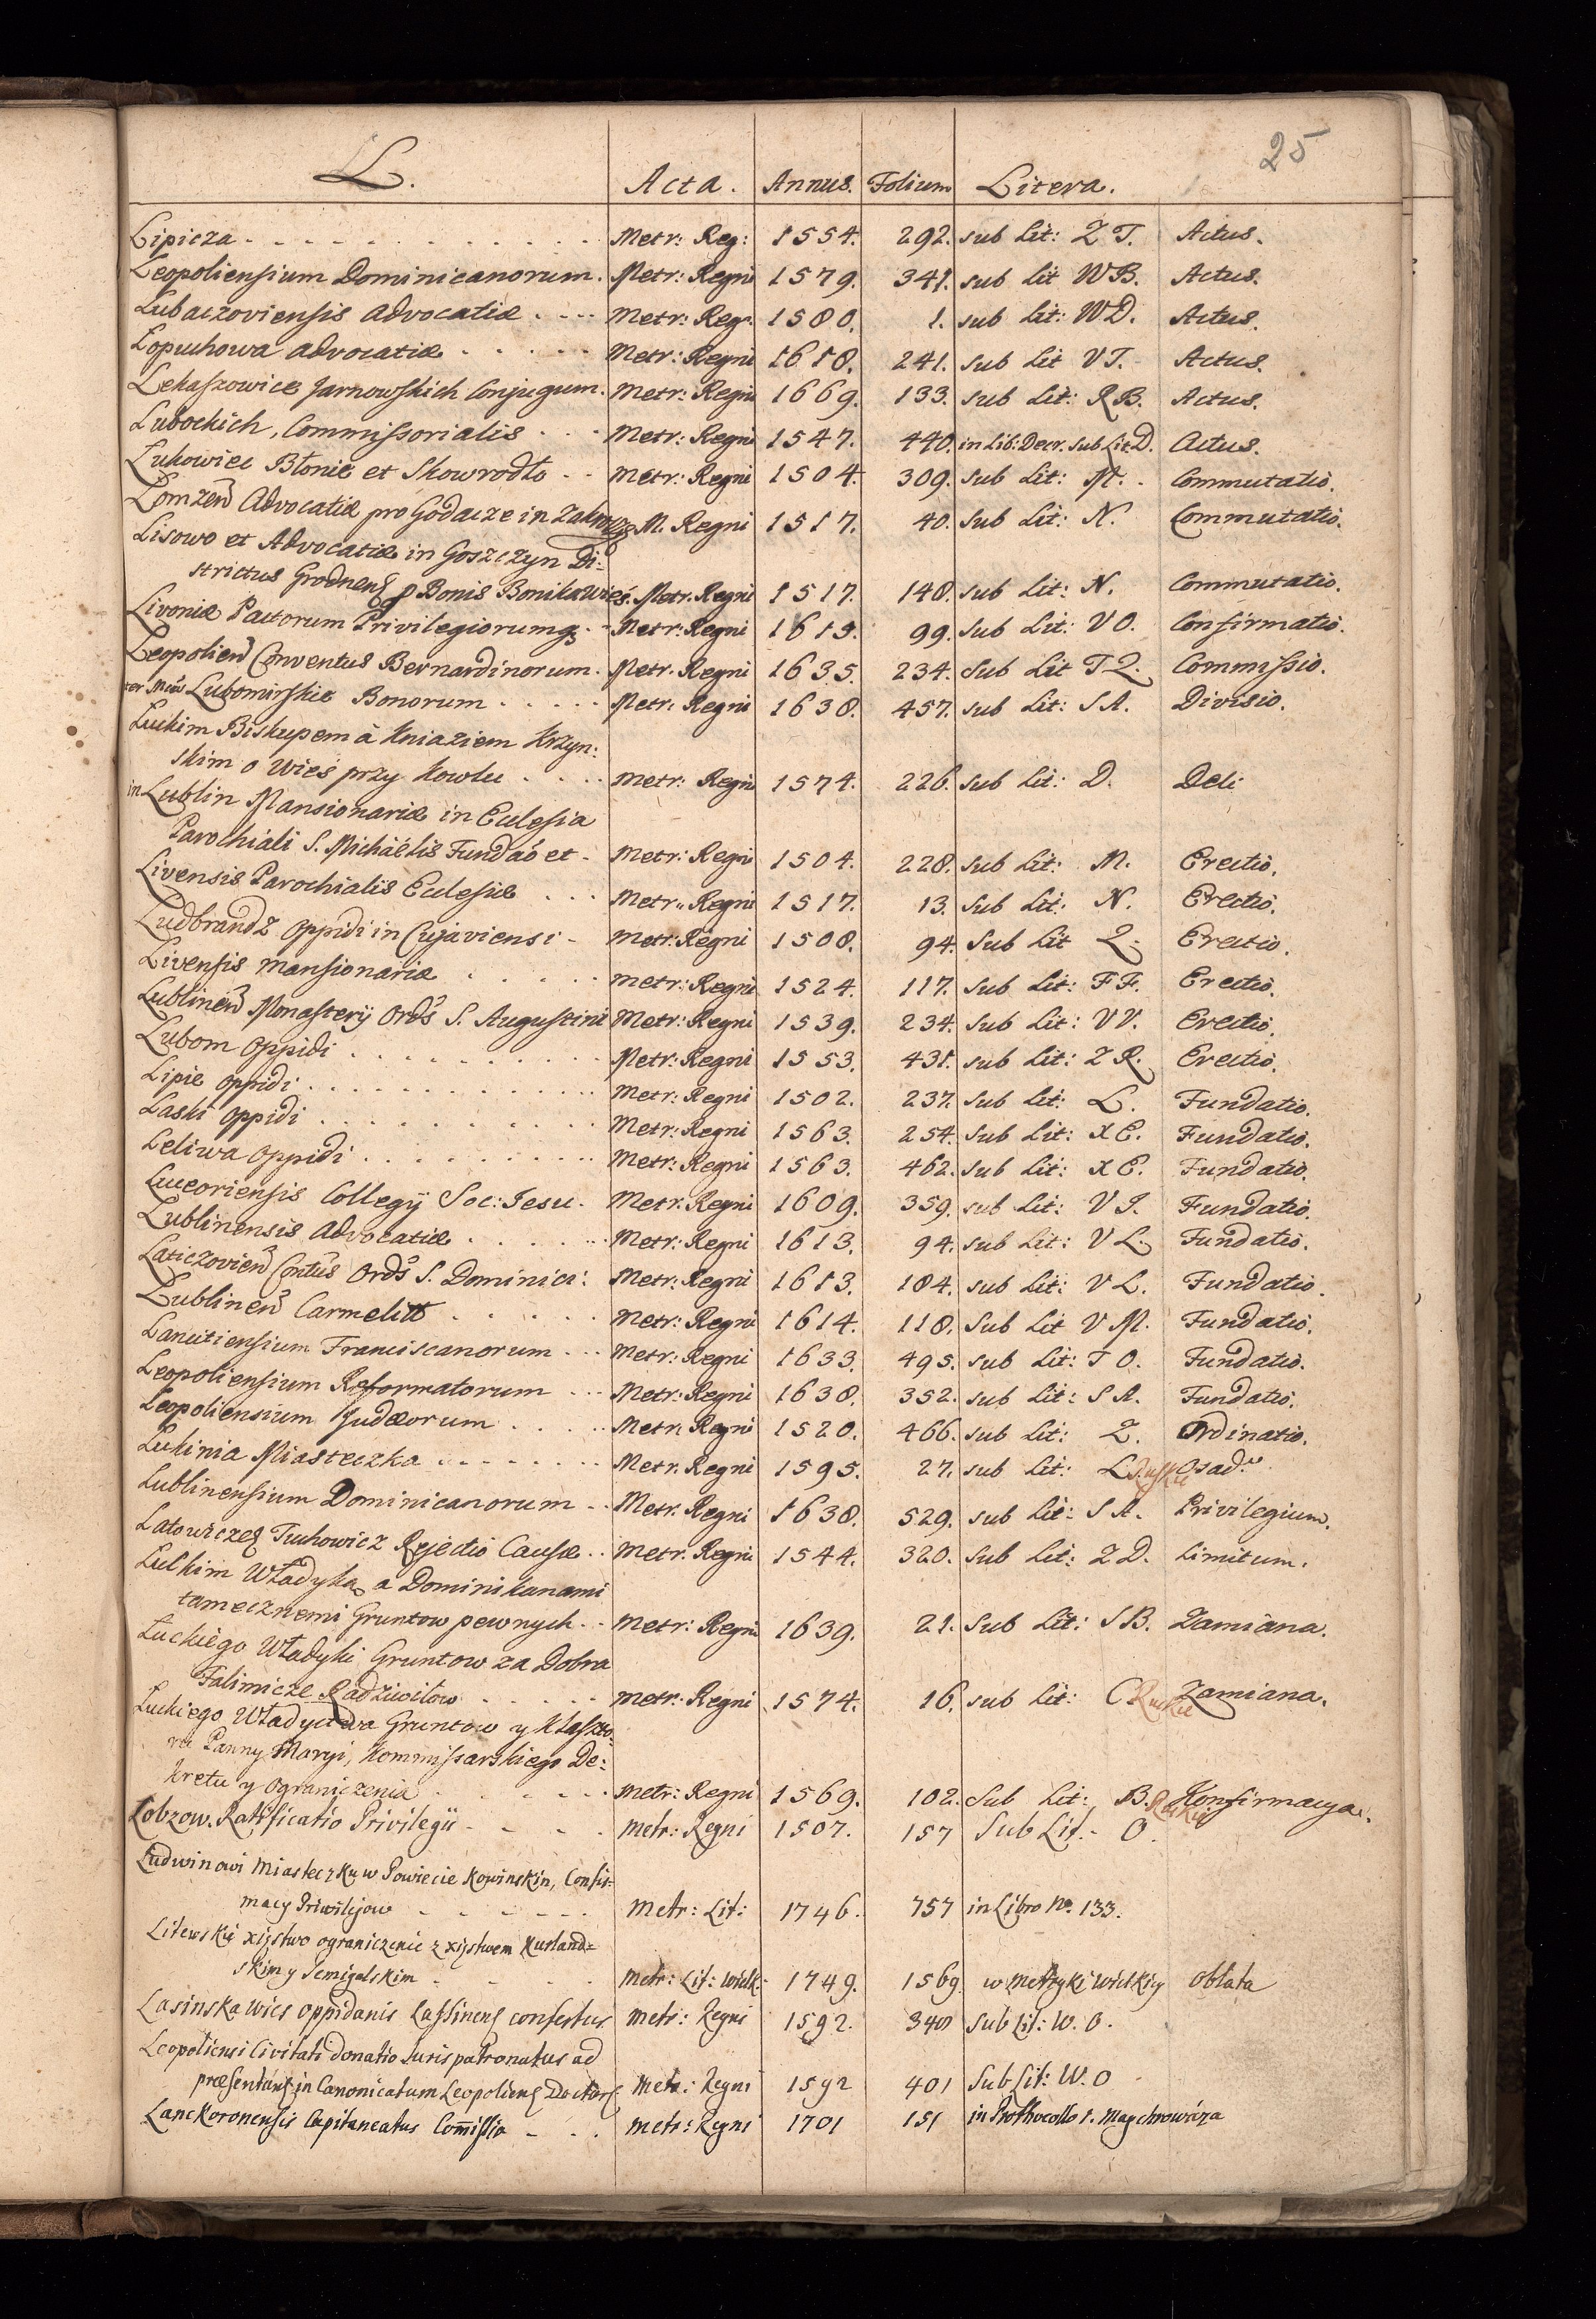 25
L. Acta. Annus. Folium Litera.
Lipicza Metr: Reg: 1554. 292. sub Lit: Z T. Actus.
Leopoliensium Dominicanorum. Metr: Regni 1579. 341. sub Lit WB. Actus.
Lubaczoviensis Advocatiæ Metr: Reg: 1580. 1. sub Lit: WD. Actus.
Lopuchowa advocatiæ Metr: Regni 1618. 241. sub Lit VT. Actus.
Lekaszowice Jarnowskich Conjugum. Metr: Regni 1669. 133. sub Lit: RB. Actus.
Lubockich, Commissorialis Metr: Regni 1547. 440. in Lib: Decr. sub Lit D. Actus.
Lukowiec Błonie et Skowrodło Metr: Regni 1504. 309. Sub Lit: M. Commutatio.
Lomzen Advocatiæ pro Godacze in M. Regni 1517. 40. Sub Lit: N. Commutatio.
Lisowo et Advocatiæ in Goszczyn Di:
strictus Grodnens p Bonis Bonikawies. Metr. Regni 1517. 148. sub Lit: N. Commutatio.
Livoniæ Pactorum Privilegiorumq Metr: Regni 1613. 99. Sub Lit: VO. Confirmatio.
Leopolien Conventus Bernardinorum. Metr. Regni 1635. 234. Sub Lit TQ. Commissio.
Lubomirskie Bonorum Metr. Regni 1638. 457. sub Lit: SA. Divisio.
Luckim Biskupem à Kniaziem Krzyn:
skim o Wieś przy Kowlu Metr: Regni 1574. 226. sub Lit: D. Deli
in Lublin Mansionariæ in Eclesia
Parochiali S. Michaëlis Fundaõ et Metr: Regni 1504. 228. Sub Lit: M. Erectio.
Livensis Parochialis Eclesiæ Metr: Regni 1517. 13. Sub Lit: N. Erectio.
Ludbrandz oppidi in Cujaviensi Metr: Regni 1508. 94. Sub Lit Q. Erectio.
Livensis mansionariæ Metr: Regni 1524. 117. Sub Lit: FF. Erectio.
Lublinen Monasterij Ords S. Augustini Metr: Regni 1539. 234. Sub Lit: VV. Erectio.
Lubom oppidi Metr: Regni 1553. 431. sub Lit: Z R. Erectio.
Lipie oppidi Metr: Regni 1502. 237. Sub Lit: L. Fundatio.
Laski oppidi Metr: Regni 1563. 254. Sub Lit: X E. Fundatio.
Leliwa oppidi Metr: Regni 1563. 462. Sub Lit: X E. Fundatio.
Luceoriensis Collegij Soc: Jesu. Metr. Regni 1609. 359. sub Lit: V I. Fundatio.
Lublinensis Advocatiæ Metr: Regni 1613. 94. sub Lit: V L. Fundatio.
Laticzovien Cntus Ords S. Dominici. Metr: Regni 1613. 184. sub Lit: V L. Fundatio.
Lublinen Carmelitt Metr: Regni 1614. 118. Sub Lit V M. Fundatio.
Lancitiensium Franciscanorum Metr: Regni 1633. 495. sub Lit: T O. Fundatio.
Leopoliensium Reformatorum Metr: Regni 1638. 352. sub Lit: S A. Fundatio.
Leopoliensium Judæorum Metr. Regni 1520. 466. sub Lit: Z. Ordinatio.
Lukinia Miasteczka Metr. Regni 1595. 27. sub Lit: L Ruskie Osad.
Lublinensium Dominicanorum Metr. Regni 1638. 529. sub Lit: S A. Privilegium.
Latowiczes Tuchowicz Rejectio Causæ Metr. Regni 1544. 320. Sub Lit: Z D. Limitum.
Luckim Władyką a Dominikanami
tamecznemi Gruntow pewnych Metr: Regni 1639. 21. Sub Lit: S B. Zamiana.
Luckiego Władyki Gruntow za Dobra
Falimicze Radziwiłow Metr: Regni 1574. 16. sub Lit: C Ruskie Zamiana.
Luckiego Władyctwa Gruntow y Klaszto:
ru Panny Maryi, Kommissarskiego De:
kretu y ograniczenia Metr: Regni 1569. 102. Sub Lit: B. Ruskie Konfirmacya.
Lobzow. Ratificatio Privilegii Metr: Regni 1507. 157 Sub Lit. O.
Ludwinowi Miasteczku w Powiecie Kowinskim, Confir=
macy Priwilejow Metr: Lit: 1746. 757 in Libro No. 133.
Litewskie xięstwo ograniczenie z xięstwem Kurland=
skim y Semigalskim Metr: Lit: Wielk: 1749. 1569 w Metryki Wielkiey Oblata
Lasinska Wies oppidanis Lassinens confertur Metr: Regni 1592. 340 Sub Lit: W. O.
Leopoliensi Civitati donatio Iuris patronatus ad
præsentand in Canonicatum Leopoliens Doctors Metr: Regni 1592 401 Sub Lit: W. O
Lanckoronensis Capitaneatus Comissio Metr: Regni 1701 151 in Prothocollo